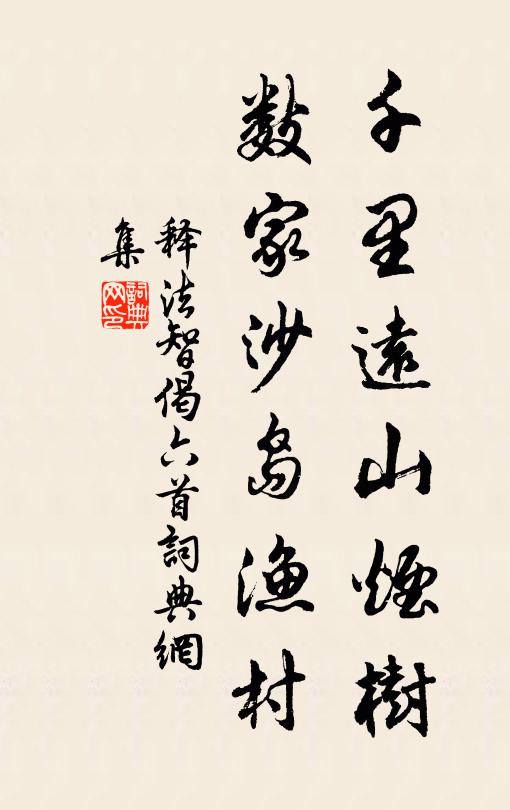 千里遠山煙樹
数家沙島漁村
释法智偈六首詞典網
集
詞典
网印